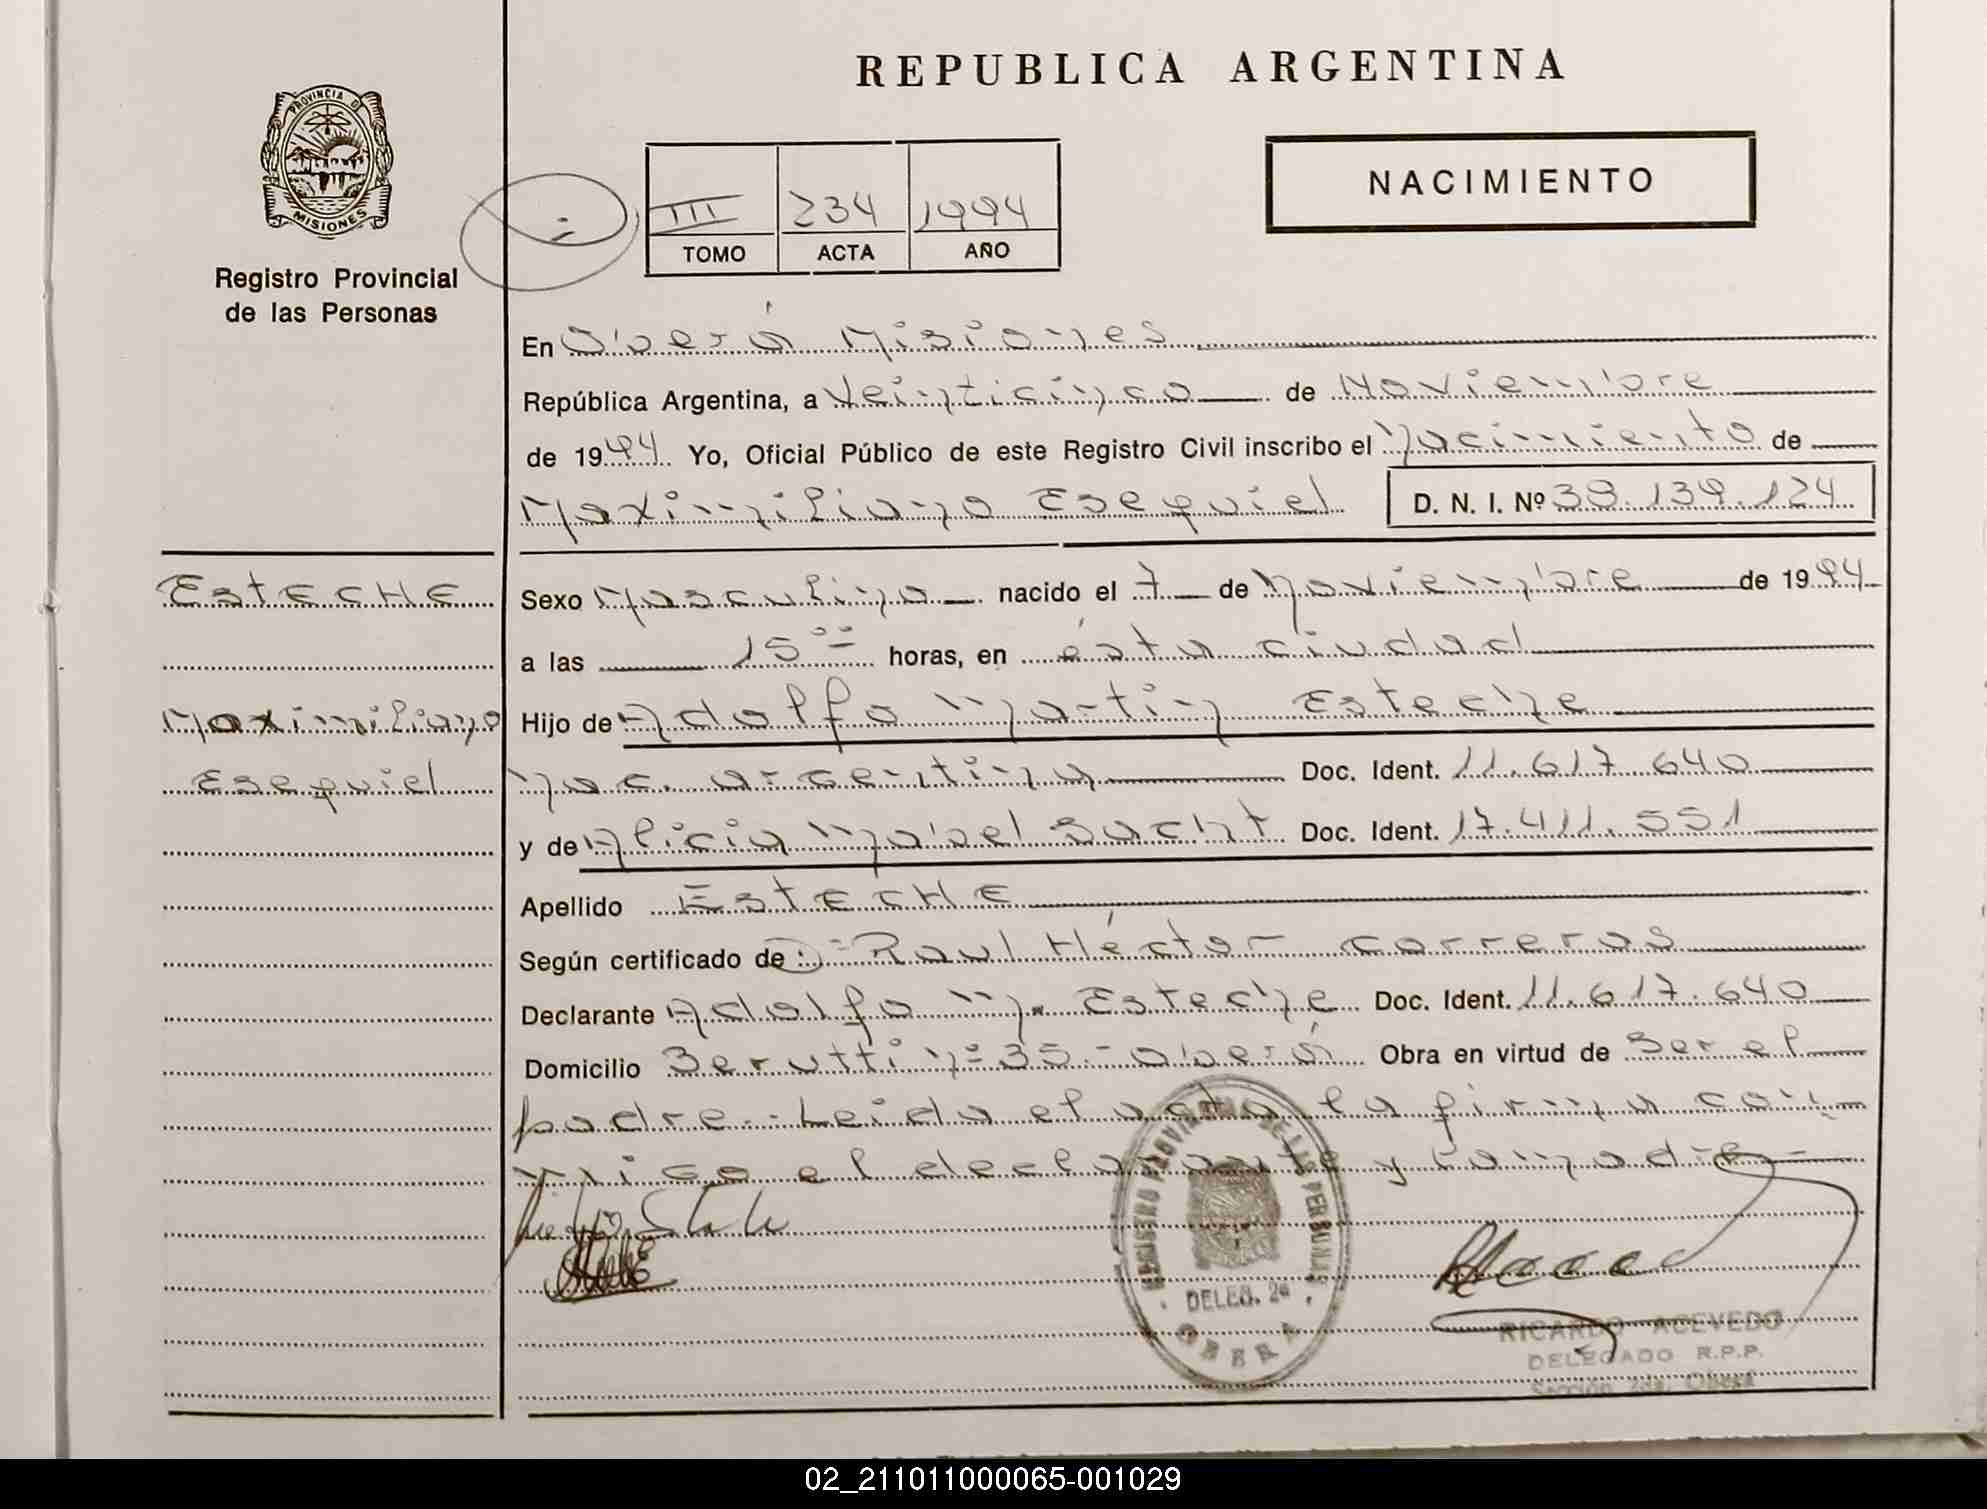 REPUBLICA ARGENTINA
PROVINCIA D
MISIONES
Registro Provincial
de las Personas
III 234 1994
TOMO ACTA AÑO
NACIMIENTO
En Oberá Misiones
República Argentina, a Veinticinco de Noviembre
de 1994 Yo, Oficial Público de este Registro Civil inscribo el Nacimiento de
Maximiliano Esequiel D. N. I. Nº 38.139.124
ESTECHE
Maximiliano
Esequiel
Sexo Masculino nacido el 7 de Noviembre de 1994
a las 15 00 horas, en ésta ciudad
Hijo de Adolfo Martin Esteche
nac. argentina Doc. Ident. 11.617.640
y de Alicia Mabel Bacht Doc. Ident. 17.411.551
Apellido ESTECHE
Según certificado de :- Raul Héctor Carreras
Declarante Adolfo M. Esteche Doc. Ident. 11.617.640
Domicilio Berutti nº 35.- Oberá Obra en virtud de ser el
padre.- Leida el acta la firma con-
migo el declarante y la madre-
REGISTRO PROVINCIAL DE LAS PERSONAS
DELEG. 2a
OBERA
RICARDO ACEVEDO
DELEGADO R.P.P.
Sección 2da. Oberá
02_211011000065-001029